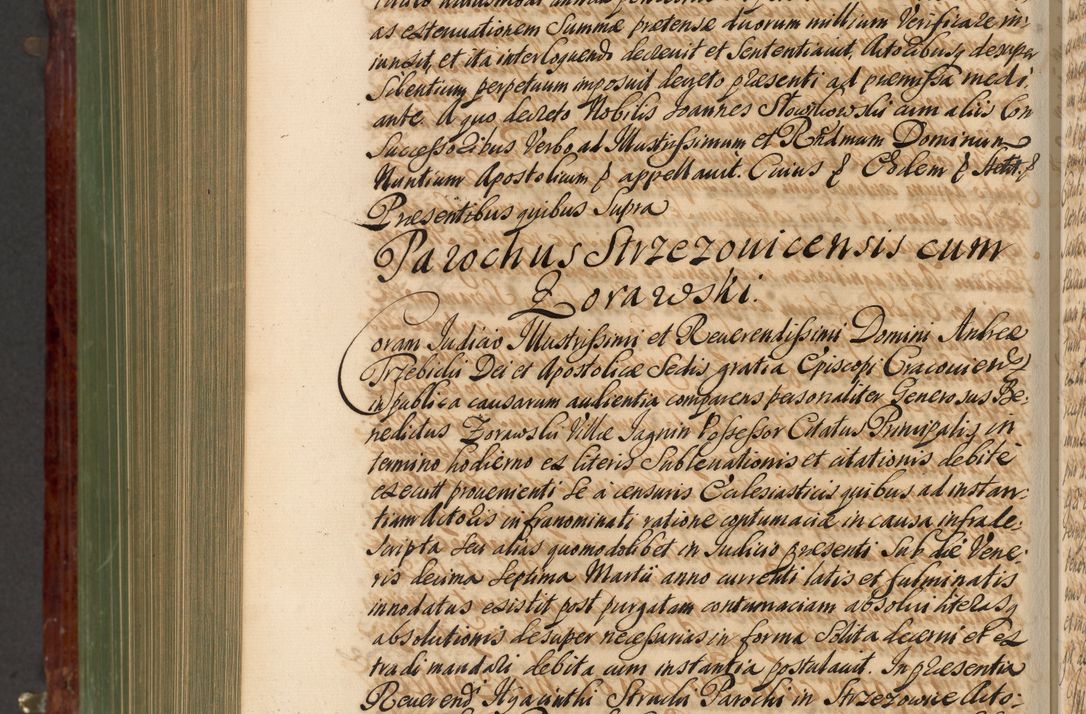 as extenuationem Summæ prætensæ duorum millium Verificare in-
iunxit, et ita interloquendo decreuit et Sententiauit, Actoribusq desuper
Silentium perpetuum imposuit decreto præsenti ad præmissa medi
ante. A quo decreto Nobilis Joannes Stawkowski cum aliis Con
Successoribus Verbo ad Illustrissimum et R̃ndmum Dominum
Nuntium Apostolicum p appellauit. Cuius
Præsentibus quibus Supra
Parochus Strzezouicensis cum
Zorawski.
Coram Judicio Illustrissimi et Reuerendissimi Domini Andreæ
Trzebicki Dei et Apostolicæ Sedis gratia Episcopi Cracouien
in publica causarum audientia comparens personaliter Generosus Be-
nedictus Zorawski Villæ Jagnin Possessor Citatus Principalis in
termino hodierno ex literis Subleuationis et citationis debite
execut prouenienti se a censuris Ecclesiasticis quibus ad instan-
tiam Actoris infranominati ratione contumaciæ in causa infrade-
scripta Seu alias quomodolibet in Judicio præsenti Sub die Vene-
ris decima Septima Martii anno currenti latis et fulminatis
innodatus existit post purgatam contumaciam absolui literasq
absolutionis desuper necessarias in forma Solita decerni et ex
tradi mandari debita cum instantia postulauit. In præsentia
Reuerend Hyacinthi Parochi in Strzezowice Acto-